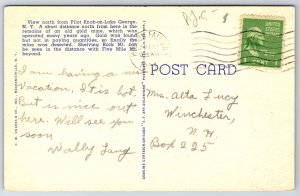 View north from Pilot Knob-on-Lake George,
N. Y. A short distance north from here is the
remains of an old gold mine, which was
operated many years ago. Gold was found
but not in paying quantities, so finally the
mine was deserted. Shelving Rock Mt. can
be seen in the distance with Five Mile Mt.
beyond.
I am having a nice
Vacation, It is hot,
But is nice out
here. Well see you
soon
Wally Lang
POST CARD
Mrs. Alta Lucy
Winchester,
N. H.
Box 225
1 CENT 1